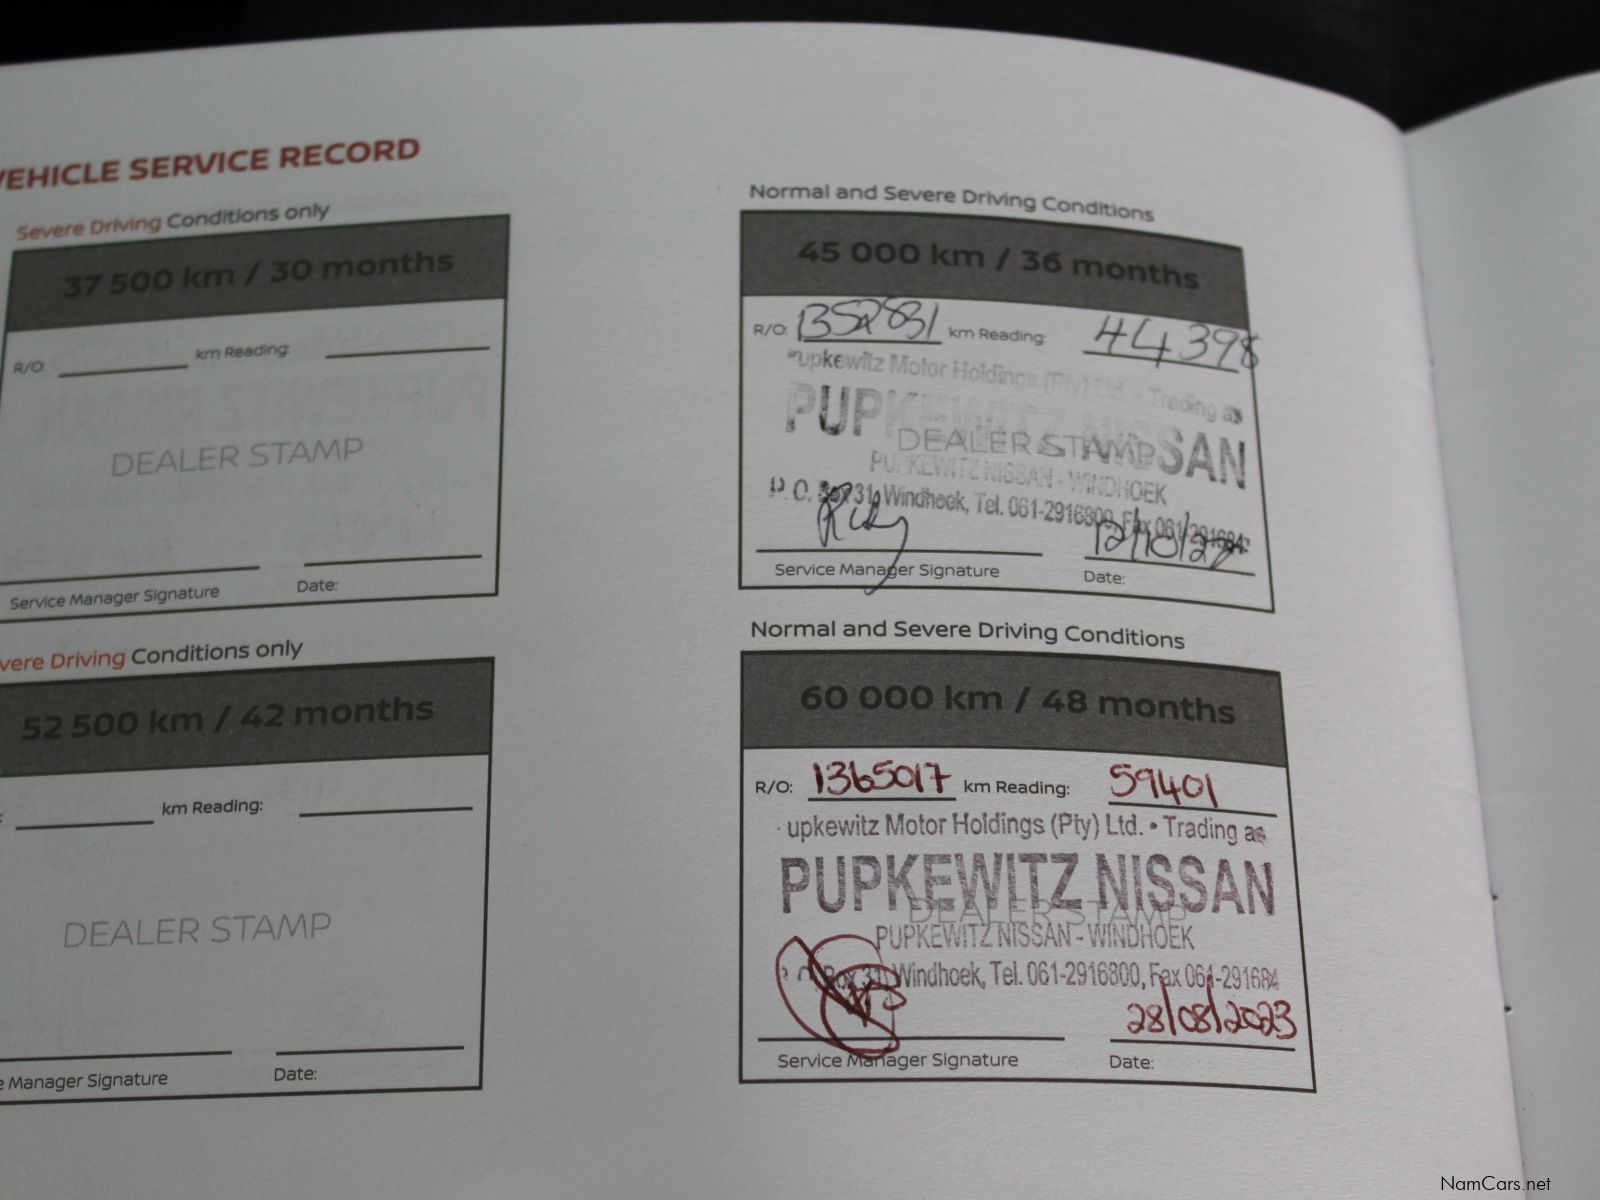 VEHICLE SERVICE RECORD
Severe Driving Conditions only
37 500 km / 30 months
R/O: km Reading:
DEALER STAMP
Service Manager Signature Date:
vere Driving Conditions only
52 500 km / 42 months
: km Reading:
DEALER STAMP
e Manager Signature Date:
Normal and Severe Driving Conditions
45 000 km / 36 months
R/O: 1352831 km Reading: 44398
upkewitz Motor Holdings (Pty) Ltd. • Trading as
PUPKEWITZ NISSAN
DEALER STAMP
PUPKEWITZ NISSAN - WINDHOEK
P. O. Box 31, Windhoek, Tel. 061-2916800, Fax 061-291684
12/10/22
Service Manager Signature Date:
Normal and Severe Driving Conditions
60 000 km / 48 months
R/O: 1365017 km Reading: 59401
upkewitz Motor Holdings (Pty) Ltd. • Trading as
PUPKEWITZ NISSAN
DEALER STAMP
PUPKEWITZ NISSAN - WINDHOEK
P. O. Box 31, Windhoek, Tel. 061-2916800, Fax 061-291684
28/08/2023
Service Manager Signature Date:
NamCars.net